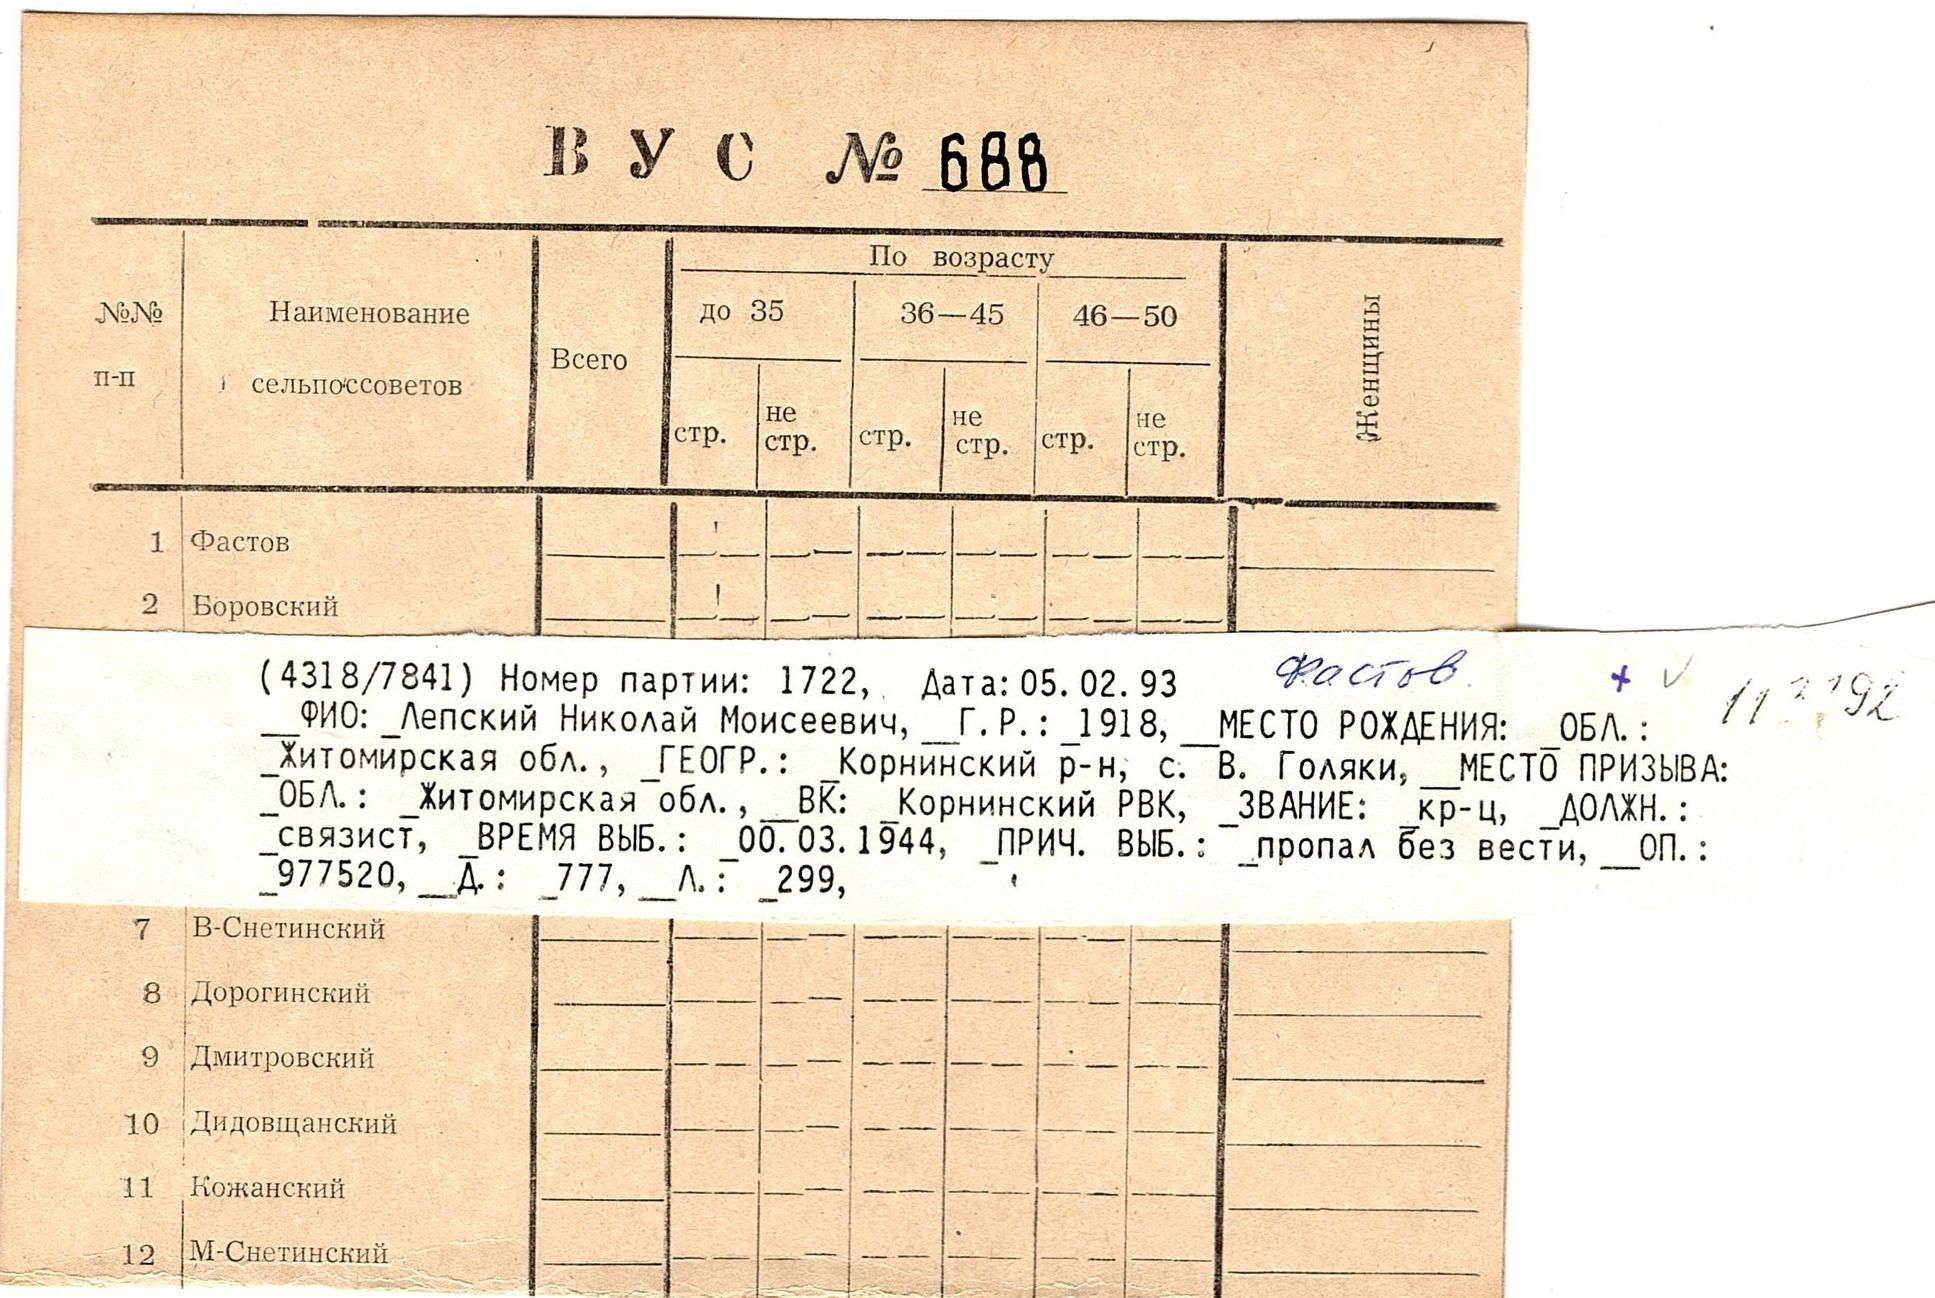 ВУС № 688
По возрасту
№№ п-п
Наименование сельпоссоветов
Всего
до 35
36—45
46—50
Женщины
стр.
не стр.
стр.
не стр.
стр.
не стр.
1 Фастов
2 Боровский
(4318/7841) Номер партии: 1722, Дата: 05.02.93 Фастов +
__ФИО: _Лепский Николай Моисеевич, __Г.Р.: _1918, __МЕСТО РОЖДЕНИЯ: _ОБЛ.:
_Житомирская обл., _ГЕОГР.: _Корнинский р-н, с. В. Голяки, __МЕСТО ПРИЗЫВА:
_ОБЛ.: _Житомирская обл., __ВК: _Корнинский РВК, _ЗВАНИЕ: _кр-ц, _ДОЛЖН.:
_связист, _ВРЕМЯ ВЫБ.: _00.03.1944, _ПРИЧ. ВЫБ.: _пропал без вести, __ОП.:
_977520, __Д.: _777, __Л.: _299,
7 В-Снетинский
8 Дорогинский
9 Дмитровский
10 Дидовщанский
11 Кожанский
12 М-Снетинский